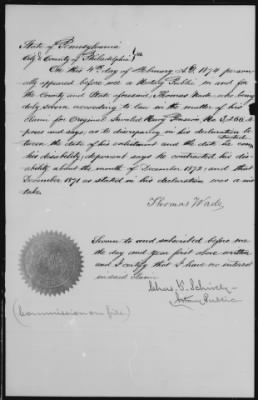 State of Pennsylvania
City & County of Philadelphia } ss
On this 4th day of February A.D. 1874 person-
ally appeared before me a Notary Public in and for
the County and State aforesaid, Thomas Wade, who being
duly sworn according to law in the matter of his
Claim for Original Invalid Navy Pension No. de-
poses and says, as to discrepancy in his declaration be-
tween the date of his enlistment and the date he contracted
his disability, deponent says he contracted his dis-
ability about the month of December 1872, and that
December 1871 as stated in his declaration was a mis-
take.
Thomas Wade
Sworn to and subscribed before me
the day and year first above written
and I certify that I have no interest
in said Claim.
Chas. V. Schively
Notary Public
(Commission on file)